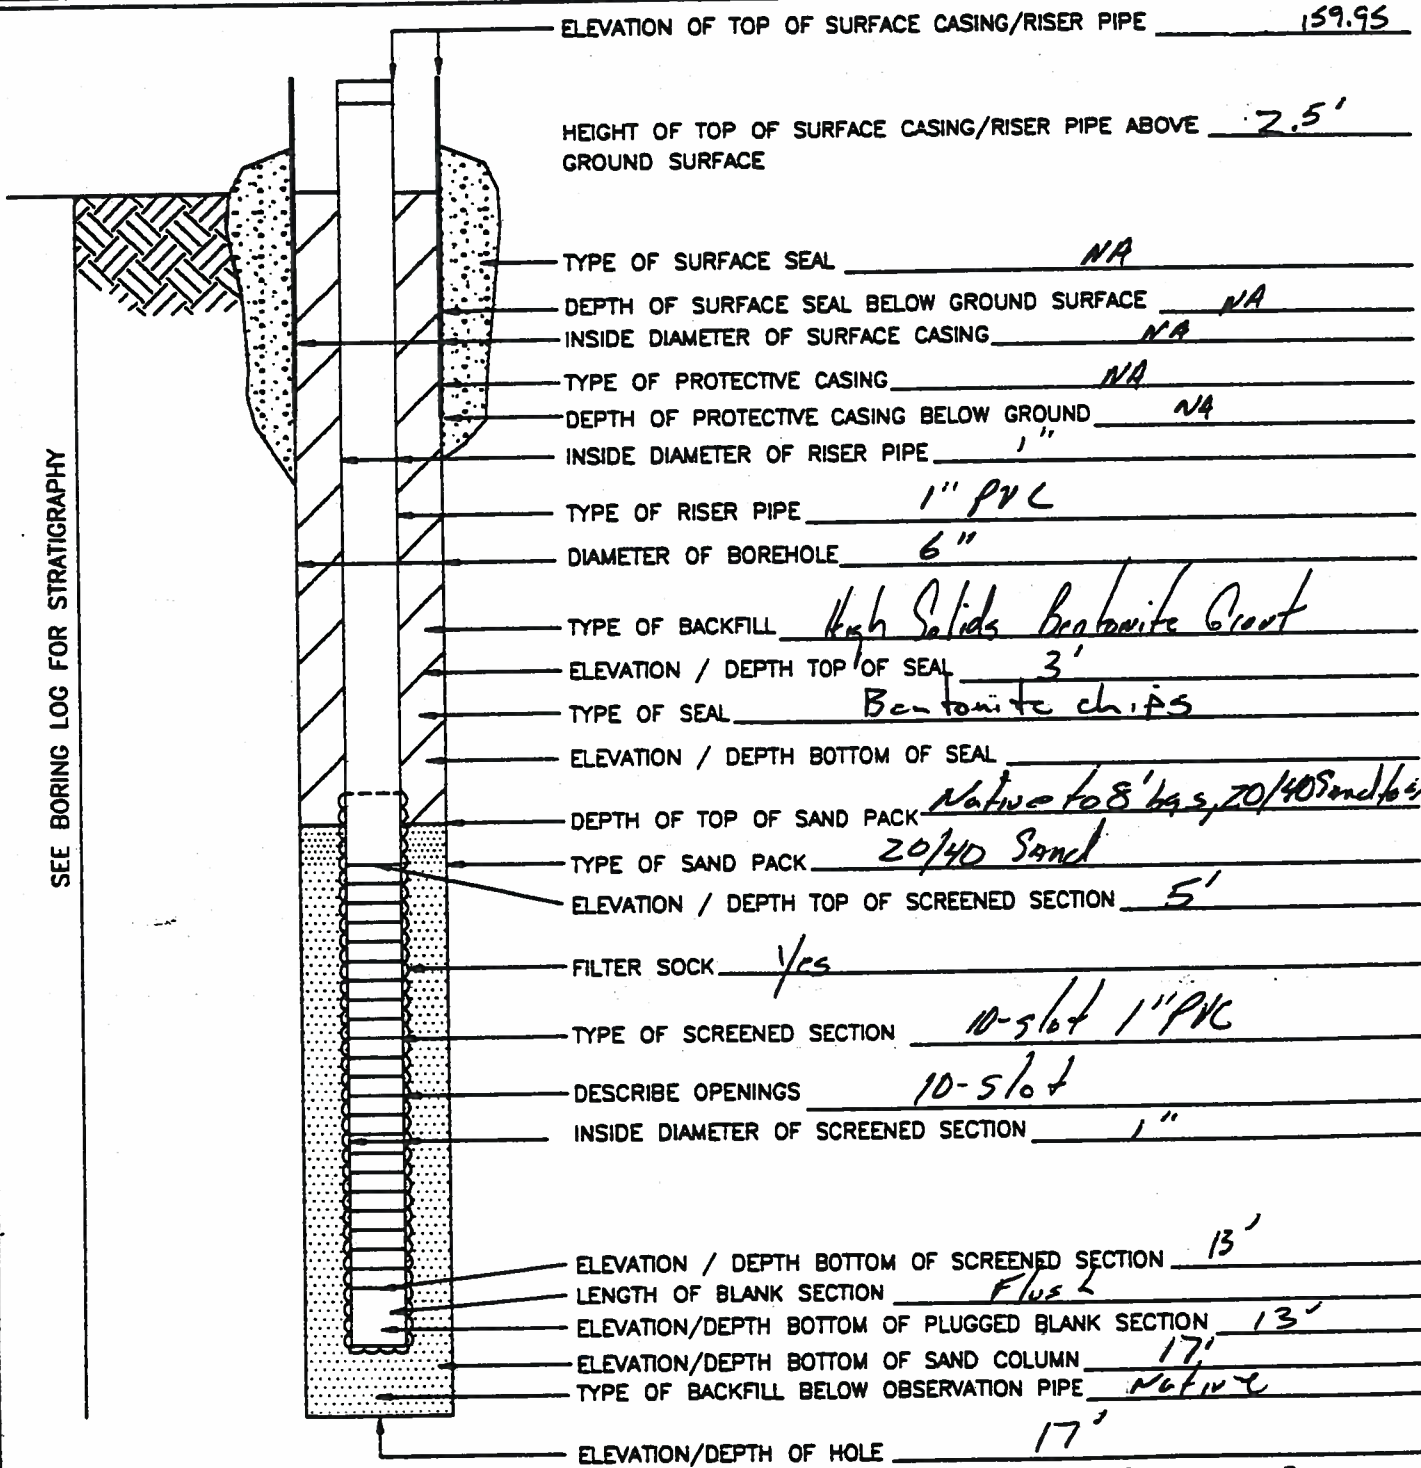 ELEVATION OF TOP OF SURFACE CASING/RISER PIPE 159.95
HEIGHT OF TOP OF SURFACE CASING/RISER PIPE ABOVE 2.5'
GROUND SURFACE
TYPE OF SURFACE SEAL NA
DEPTH OF SURFACE SEAL BELOW GROUND SURFACE NA
INSIDE DIAMETER OF SURFACE CASING NA
TYPE OF PROTECTIVE CASING NA
DEPTH OF PROTECTIVE CASING BELOW GROUND NA
INSIDE DIAMETER OF RISER PIPE 1"
TYPE OF RISER PIPE 1" PVC
DIAMETER OF BOREHOLE 6"
TYPE OF BACKFILL High Solids Bentonite Grout
ELEVATION / DEPTH TOP OF SEAL 3'
TYPE OF SEAL Bentonite chips
ELEVATION / DEPTH BOTTOM OF SEAL
DEPTH OF TOP OF SAND PACK Native to 8' bgs, 20/40 Sand to
TYPE OF SAND PACK 20/40 Sand
ELEVATION / DEPTH TOP OF SCREENED SECTION 5'
FILTER SOCK Yes
TYPE OF SCREENED SECTION 10-slot 1" PVC
DESCRIBE OPENINGS 10-slot
INSIDE DIAMETER OF SCREENED SECTION 1"
ELEVATION / DEPTH BOTTOM OF SCREENED SECTION 13'
LENGTH OF BLANK SECTION Flush
ELEVATION/DEPTH BOTTOM OF PLUGGED BLANK SECTION 13'
ELEVATION/DEPTH BOTTOM OF SAND COLUMN 17'
TYPE OF BACKFILL BELOW OBSERVATION PIPE Native
ELEVATION/DEPTH OF HOLE 17'
SEE BORING LOG FOR STRATIGRAPHY